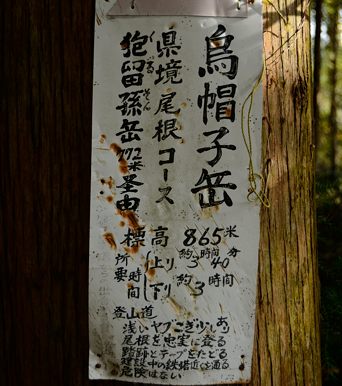 烏帽子岳
県境尾根コース
狗留孫岳772米聖由
くるそん
標高 865米
所要時間
上り 約3時間40分
下り 約3時間
登山道
浅いヤブこぎ少しあり
尾根を忠実に登る
踏跡とテープをたどる
建設中の鉄塔近くを通る
危険はない